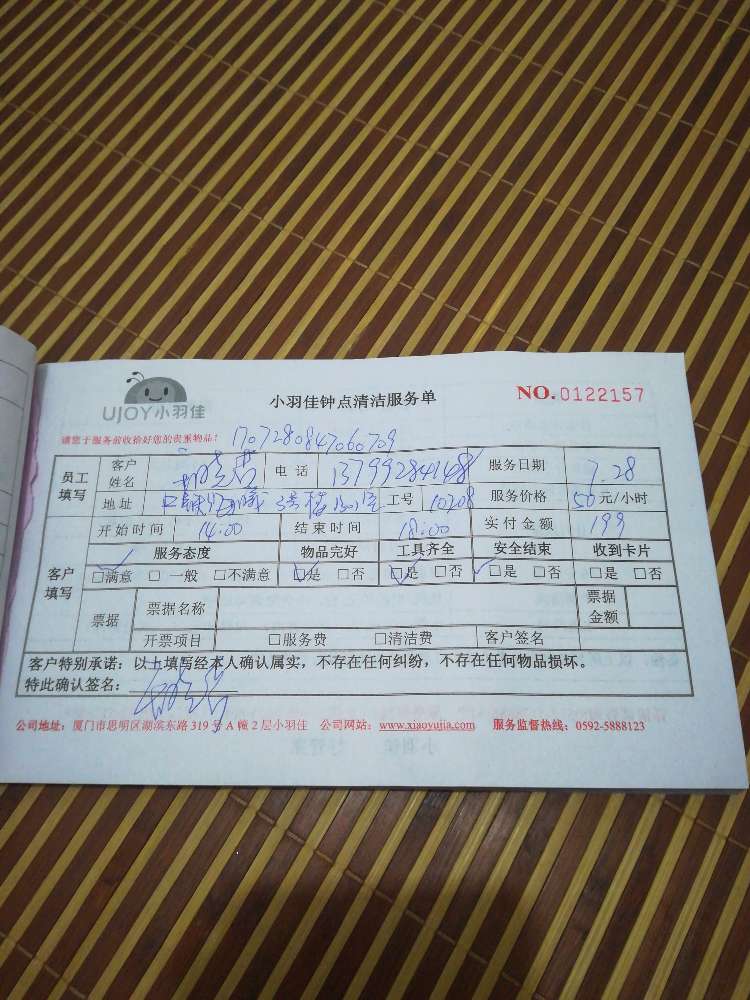 UJOY小羽佳
小羽佳钟点清洁服务单
NO.0122157
请您于服务前收拾好您的贵重物品！ 1707280847060709
员工填写 客户姓名 电话 13799284148 服务日期 7.28
地址 3号楼 工号 10208 服务价格 50元/小时
开始时间 14:00 结束时间 18:00 实付金额 199
客户填写 服务态度 物品完好 工具齐全 安全结束 收到卡片
□满意 □一般 □不满意 □是 □否 □是 □否 □是 □否 □是 □否
票据 票据名称 票据金额
开票项目 □服务费 □清洁费 客户签名
客户特别承诺：以上填写经本人确认属实，不存在任何纠纷，不存在任何物品损坏。
特此确认签名：
公司地址：厦门市思明区湖滨东路319号A幢2层小羽佳 公司网站：www.xiaoyujia.com 服务监督热线：0592-5888123